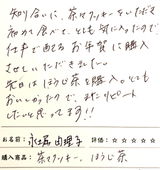 知り合いに、茶々クッキーをいただき
初めて食べて、とても気に入ったので
仕事で配るお年賀に購入
させていただきました。
先日はほうじ茶を購入。とても
おいしかったので、またリピート
したいと思ってます!!
お名前: 永江 由理子 評価: ☆☆☆☆☆
購入商品: 茶々クッキー、ほうじ茶